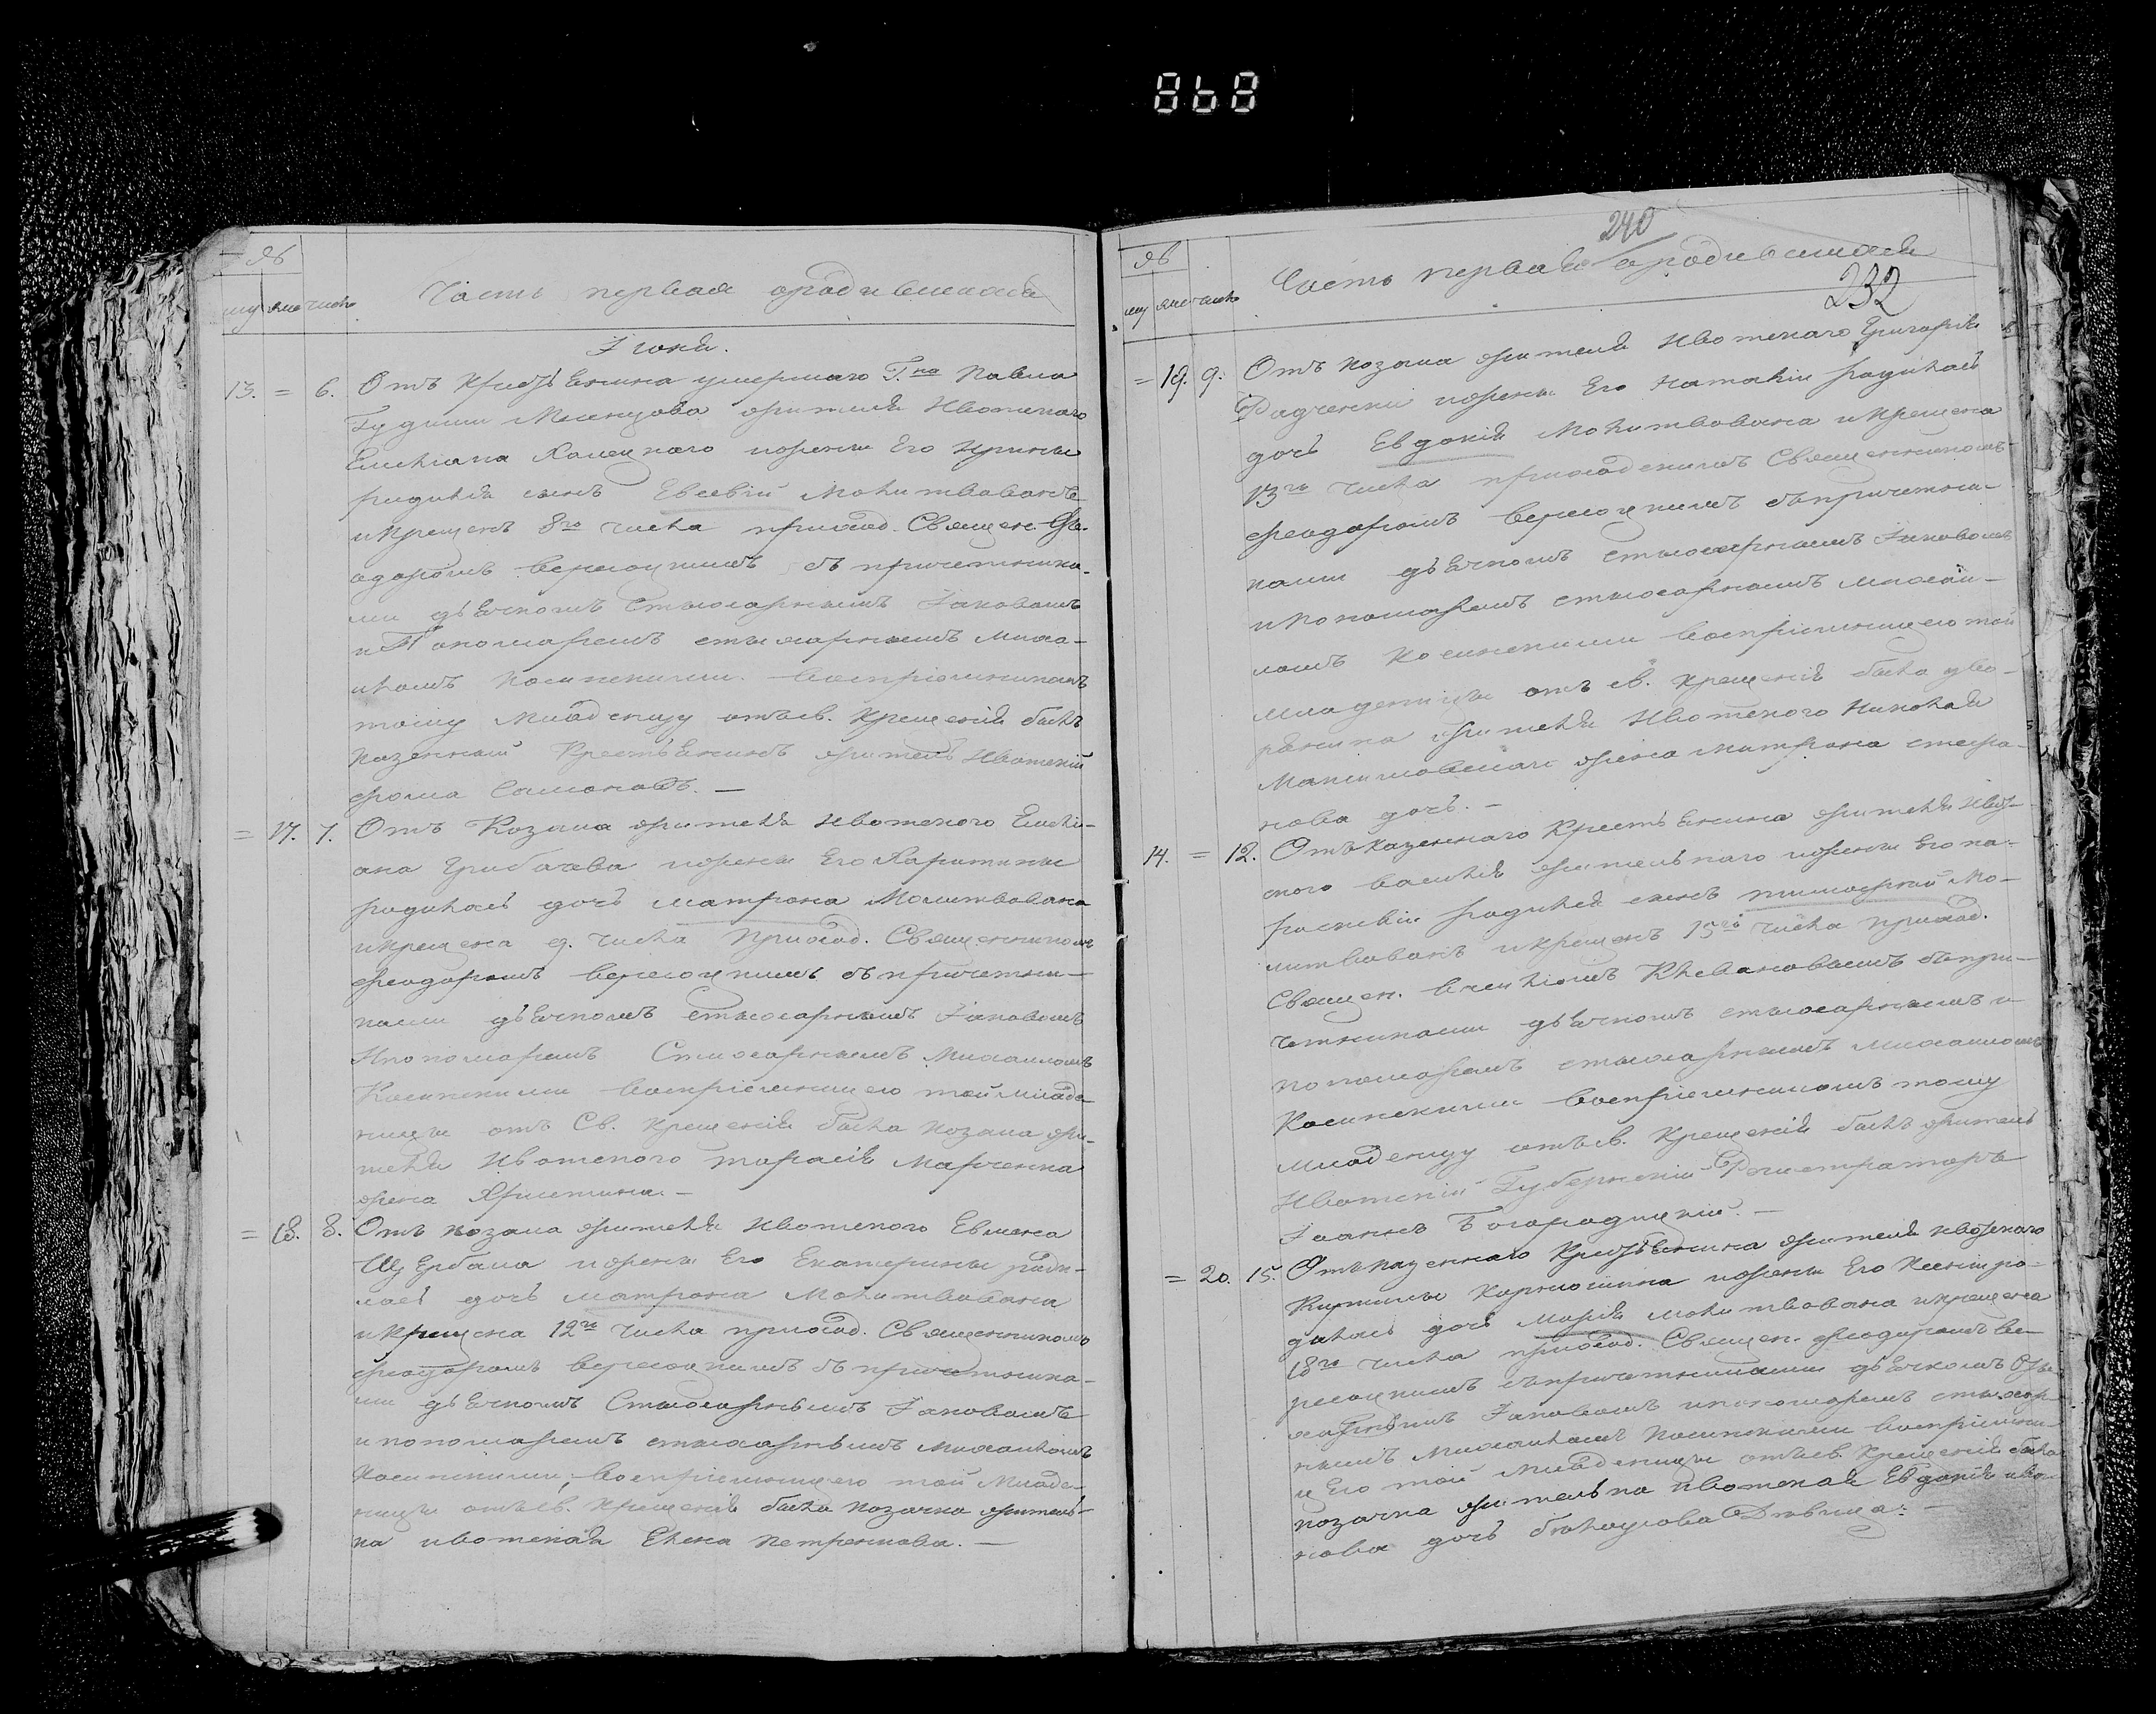 868
№
му
жен
число
Часть первая ородившихся
Июня.
13. = 6. Отъ Крестьянина умершаго Г.на Павла
жителя Ивотскаго
Емелiана Халецкаго ижены Его Ирины
родился сынъ Евсевiй Молитвованъ
икрещенъ 8го числа приход. Священ. Фе-
одоромъ Верхоцкимъ съ причетника-
ми дьячкомъ Стихарнымъ Iаковомъ
и Пономаремъ стихарнымъ Миха-
иломъ Косинскими. Воспрiемникомъ
тому Младенцу отъ св. Крещенiя былъ
казенный Крестьянинъ житель Ивотскiй
Фома Самоновъ. —
= 17. 7. Отъ Козака жителя Ивотского Емелi-
ана Грибачева ижены Его Харитины
родилась дочь Матрона Молитвована
икрещена 9. числа приход. Священникомъ
Феодоромъ Верхоцкимъ съ причетни-
ками дьячкомъ стихарнымъ Iаковомъ
Ипономаремъ Стихарнымъ Михаиломъ
Косинскими Воспрiемницею той младе-
ницы отъ Св. Крещенiя была козака жи-
теля Ивотского Тарасiя Марченка
жена Христина. —
= 18. 8. Отъ козака жителя Ивотского Евмена
Щербака ижены Его Екатерины роди-
лась дочь Матрона Молитвована
икрещена 12го числа приход. Священникомъ
Феодоромъ Верхоцкимъ съ причетника-
ми дьячкомъ Стихарнымъ Iаковомъ
и пономаремъ стихарнымъ Михаиломъ
Косинскими, Воспрiемницею той Младе-
ницы отъ св. Крещенiя была козачка житель-
ка ивотская Елена Петренкова. —
240
№
му
жен
число
Часть первая ородившихся
232
= 19. 9. Отъ козака жителя Ивотскаго Григорiя
Радченки ижены Его Наталiи родилась
дочь Евдокiя Молитвована икрещена
13го числа приходскимъ Священникомъ
Феодоромъ Верхоцкимъ съпричетни-
ками дьячкомъ стихарнымъ Iаковомъ
ипономаремъ стихарнымъ Михаи-
ломъ Косинскими Воспрiемницею той
Младеницы отъ св. Крещенiя была дво-
рянина жителя Ивотского Николая
жена Матрона Стефа-
нова дочь. —
14. = 12. Отъ казеннаго Крестьянина жителя Ивот-
ского Василiя ижены Его Па-
раскевiи родился сынъ Тимофей Мо-
литвованъ икрещенъ 15го числа приход.
Священ. съ при-
четниками дьячкомъ стихарнымъ и
пономаремъ стихарнымъ Михаиломъ
Косинскими Воспрiемникомъ тому
Младенцу отъ св. Крещенiя былъ житель
Ивотскiй Губернскiй Регистраторъ
Iоаннъ Богородицкiй. —
= 20. 15. Отъ казеннаго Крестьянина жителя ивотскаго
ижены Его ро-
дилась дочь Марiя Молитвована икрещена
18го числа приход. Священ. Феодоромъ Ве-
рхоцкимъ съпричетниками дьячкомъ Сти-
харнымъ Iаковомъ ипономаремъ стихар-
нымъ Михаиломъ Косинскими Воспрiемни-
цею той Младеницы отъ св. Крещенiя была
козачка жителька Ивотская Евдокiя Ива-
нова дочь Девица. —